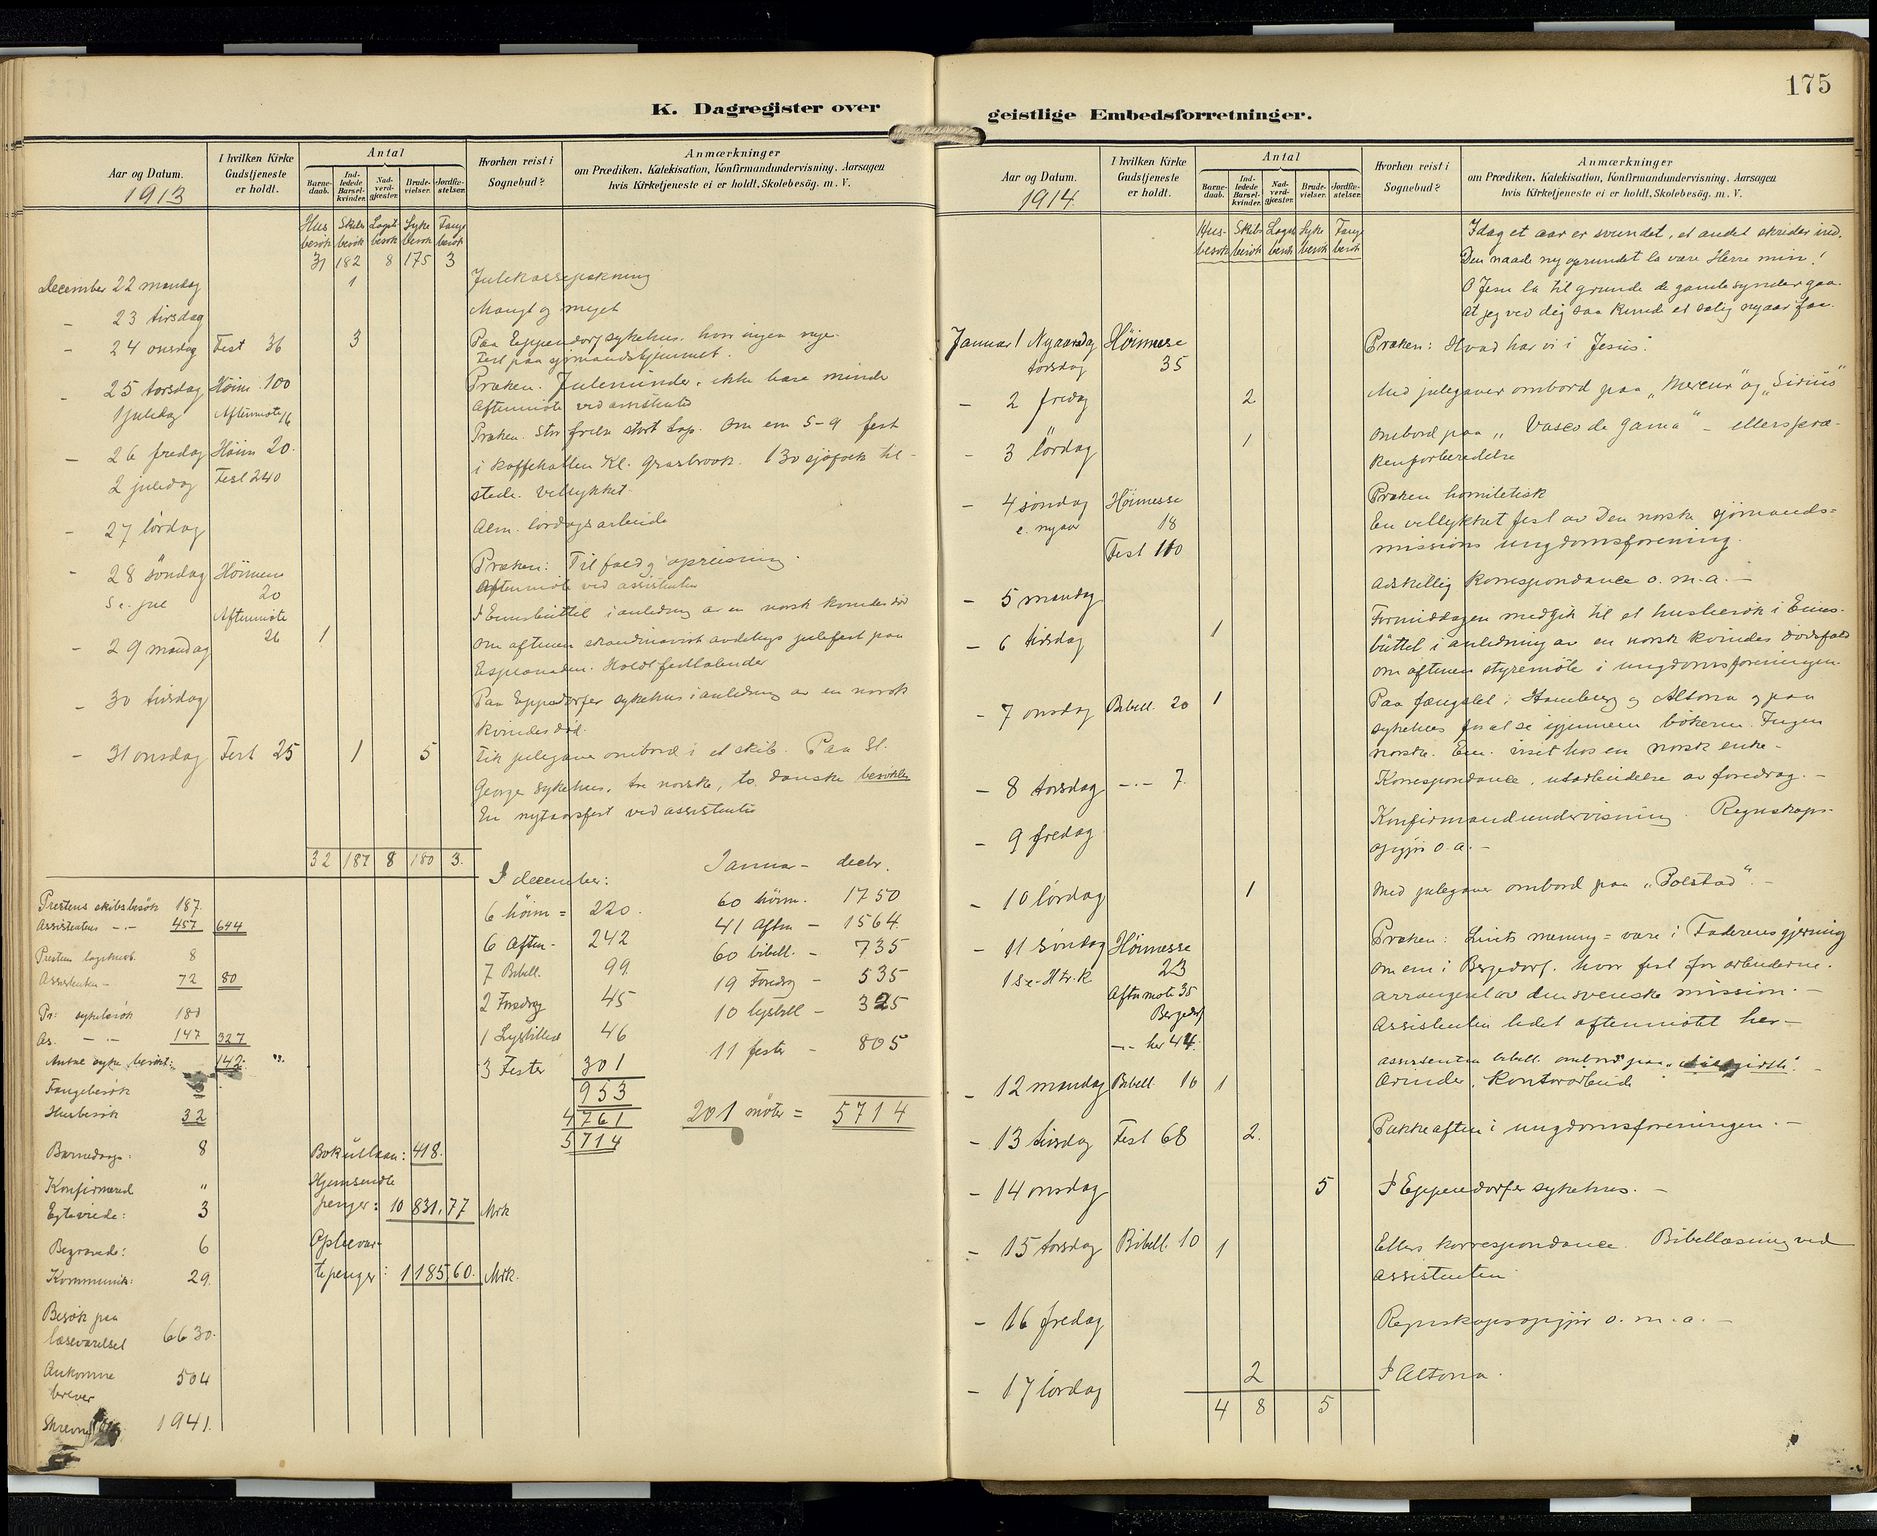 175
K. Dagregister over geistlige Embedsforretninger.
Aar og Datum.
1913
I hvilken Kirke Gudstjeneste er holdt.
Antal
Barnedaab.
Indledede Barselkvinder.
Nadverdgjester.
Brudevielser.
Jordfæstelser.
Hvorhen reist i Sognebud?
Anmærkninger
om Prædiken, Katekisation, Konfirmandundervisning, Aarsagen
hvis Kirketjeneste ei er holdt, Skolebesøg. m. V.
Husbesök Skibsbesök Logibesök Sykebesök Fangebesök
31 182 8 175 3
December 22 mandag 1 Julekassepakning
- 23 tirsdag Mangt og meget
- 24 onsdag Fest 36 3 Paa Eppendorf sykehus, hvor ingen nye.
Fest paa sjömandshjemmet.
- 25 torsdag Höim. 100 Præken. Juleminder, ikke bare minde
1 juledag Aftenmöte 16 Aftenmöte ved assistenten
- 26 fredag Höim 20. Præken. Stor frelse stort tap. Om em 5-9 fest
2 juledag Fest 240 i Kaffehallen Kl. Grasbrook. 130 sjöfolk til-
stede. Vellykket.
- 27 lördag Alm. lördagsarbeide
- 28 söndag Höimesse Præken: Til fald og opreisning.
s. e. jul 20 Aftenmöte ved assistenten
Aftenmöte 26
- 29 mandag 1 I Eimsbüttel i anledning av en norsk kvindes död
Om aftenen skandinavisk avdelings julefest paa
Esplanaden. Holdt festtalen der
- 30 tirsdag Paa Eppendorfer sykehus i anledning av en norsk
kvindes död.
- 31 onsdag Fest 25 1 5 Fik julegave ombord i et skib. Paa St.
George sykehus, tre norske, to danske besökte
En nytaarsfest ved assistenten
32 187 8 180 3.
Prestens skibsbesök 187
Assistentens -.- 457 644
Prestens logibesök 8
Assistenten - 72 80
Pr: sykebesök 180
As. -.- 147 327
Antal syke besökt: 142
Fangebesök
Husbesök 32
Barnedaap: 8
Konfirmerad "
Egteviede: 3
Begravede: 6
Kommunik: 29.
Besök paa
læseværelset 6630.
Ankomne
brever 504
Skrevne 1941.
Bokutlaan: 418.
Hjemsendte
penger: 10 831,77 Mrk
Opbevar-
te penger: 1 185,60. Mrk.
I december:
6 höim = 220.
6 Aften- 242
7 Bibell. 99
2 Foredrag 45
1 Lysbilled 46
3 Fester 301
953
4 761
5 714
Januar - decbr.
60 höim. 1750
41 Aften - 1564.
60 bibell. - 735
19 Foredrag - 535
10 lysbill - 325
11 fester - 805
201 möter = 5714
Aar og Datum.
1914
I hvilken Kirke Gudstjeneste er holdt.
Antal
Barnedaab.
Indledede Barselkvinder.
Nadverdgjester.
Brudevielser.
Jordfæstelser.
Hvorhen reist i Sognebud?
Anmærkninger
om Prædiken, Katekisation, Konfirmandundervisning, Aarsagen
hvis Kirketjeneste ei er holdt, Skolebesøg. m. V.
Husbesök Skibsbesök Logibesök Sykebesök Fangebesök
Idag et aar er svundet, et andet skrider ind.
Den naade ny oprundet la være Herre min!
O Jesu la til grunde de gamle synder gaa.
At jeg ved dig saa kunde et salig nyaar faa.
Januar 1 Nyaarsdag Höimesse Præken: Hvad har vi i Jesus?
torsdag 35
- 2 fredag 2 Med julegaver ombord paa "Mercur" og "Sirius"
- 3 lördag 1 Ombord paa "Vasco de Gama" - ellers præ-
kenforberedelse
- 4 söndag Höimesse Præken homiletisk
e. nyaar 18 En vellykket fest av Den norske sjömands-
Fest 110 missions ungdomsforening.
- 5 mandag Adskillig korrespondance o. m. a. -
- 6 tirsdag 1 Formiddagen medgik til et husbesök i Eims-
büttel i anledning av en norsk kvindes dödsfald
Om aftenen styremöte i ungdomsforeningen
- 7 onsdag Bibell. 20 1 Paa fængslet i Hamburg og Altona og paa
sykehus for at se igjennem bökerne. Ingen
norske. Em. visit hos en norsk enke -
- 8 torsdag -.- 7. Korrespondance, utarbeidelse av foredrag. -
- 9 fredag Konfirmandundervisning. Regnskaps-
opgjör o. a. -
- 10 lördag 1 Med julegaver ombord paa "Polstad". -
- 11 söndag Höimesse Præken: Livets mening = være i Faderens gjerning
1 s. e. H. tr. k 23 Om em i Bergedorf, hvor fest for arbeiderne.
Aftenmöte 35 arrangert av den svenske mission. -
Bergedorf Assistenten ledet aftenmötet her -
-.- her 44.
assistenten bibell. ombord paa
- 12 mandag Bibell. 16 1 Ærinder, kontorarbeide
- 13 tirsdag Fest 68 2. Pakkeaften i ungdomsforeningen. -
- 14 onsdag 5 I Eppendorfer sykehus. -
- 15 torsdag Bibell. 10 1 Ellers korrespondance. Bibellæsning ved
assistenten
- 16 fredag Regnskapsopgjör o. m. a. -
- 17 lördag 2 I Altona.
4 8 5